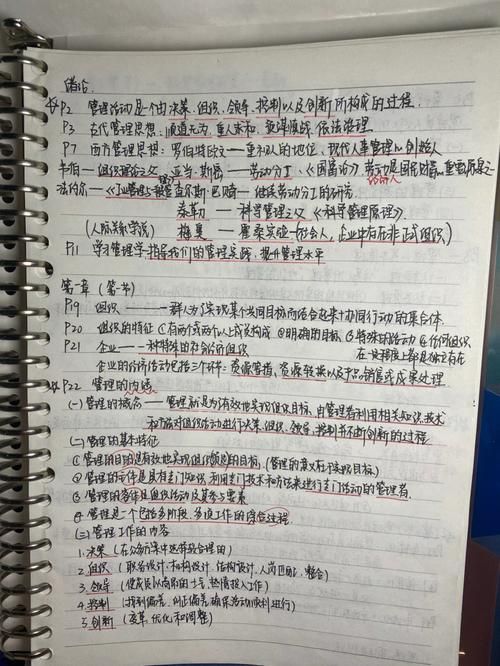 绪论
☆P2 管理活动是个由决策、组织、领导、控制以及创新所构成的过程.
P3 古代管理思想：顺道无为,重人求和,预谋慎战,依法治理
P7 西方管理思想：罗伯特欧文—重视人的地位,现代人事管理的创始人
韦伯—组织理论之父 亚当·斯密——劳动分工、《国富论》劳动是国民财富的重要源泉之一
法约尔—《工业管理与 查尔斯·巴贝奇—继续劳动分工的研究
泰勒——科学管理之父《科学管理原理》.
(人际关系学说) 梅奥—霍桑实验—(社会人,企业中存在非正式组织)
P11 学习管理学指导我们的管理实践,提升管理水平
第一章(第一节)
P19 组织——一群人为了实现某个共同目标而结合起来协同行动的集合体.
P20 组织的特征 ①有两个或两个以上成员构成 ②明确的目标 ③特殊的活动 ④任何组织在一定程度上都是独立存在
P21 企业—一种特殊的社会经济组织
企业的经济活动包括三个环节：资源筹措、资源转换以及产品销售或成果处理
☆P22 管理的内涵
(一)管理的概念——管理就是为有效地实现组织目标,由管理者利用相关知识、技术
和方法对组织活动进行决策、组织、领导、控制并不断创新的过程
(二)管理的基本特征
①管理的目的是有效地实现组织预定的目标.(管理的意义在于实现目标)
②管理的主体是具有专门知识,利用专门技术和方法来进行专门活动的管理者.
③管理的客体是组织活动及其参与要素
④管理是一个包括多阶段、多项工作的综合过程.
(三)管理工作的内容
1.决策(在众方案中选择最合理的)
2.组织(职务设计、机构设计、结构设计、人岗匹配、整合)
3.领导(使成员以高昂的士气、热情投入工作)
4.控制(找到偏差,纠正偏差,确保活动顺利进行)
5.创新(变革,优化和调整)